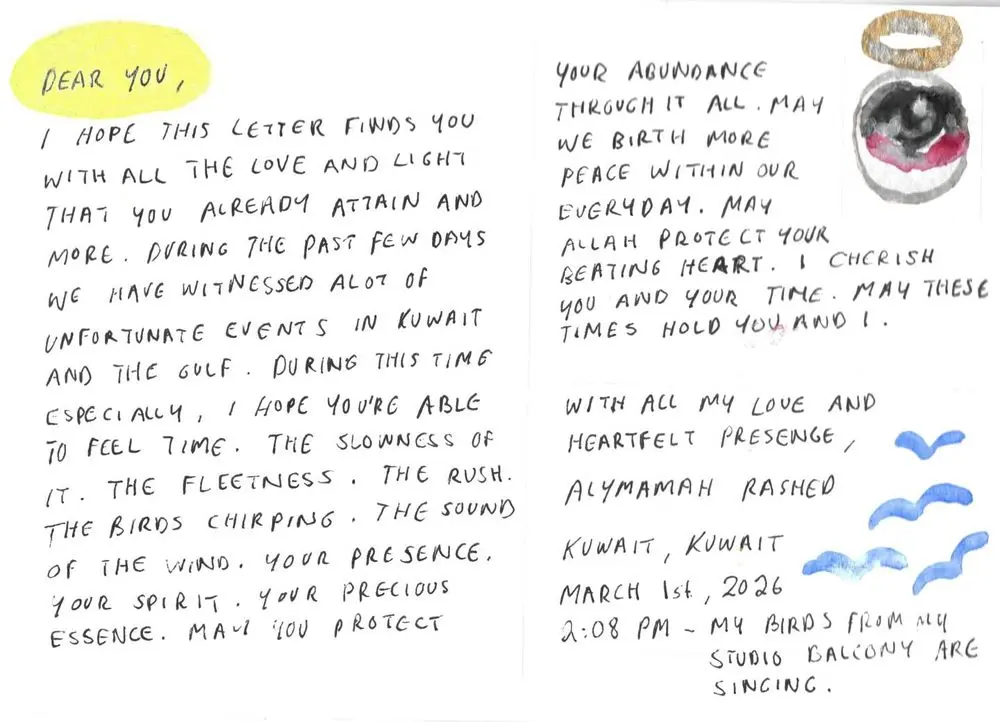 DEAR YOU,
I HOPE THIS LETTER FINDS YOU
WITH ALL THE LOVE AND LIGHT
THAT YOU ALREADY ATTAIN AND
MORE. DURING THE PAST FEW DAYS
WE HAVE WITNESSED ALOT OF
UNFORTUNATE EVENTS IN KUWAIT
AND THE GULF. DURING THIS TIME
ESPECIALLY, I HOPE YOU'RE ABLE
TO FEEL TIME. THE SLOWNESS OF
IT. THE FLEETNESS. THE RUSH.
THE BIRDS CHIRPING. THE SOUND
OF THE WIND. YOUR PRESENCE.
YOUR SPIRIT. YOUR PRECIOUS
ESSENCE. MAY YOU PROTECT
YOUR ABUNDANCE
THROUGH IT ALL. MAY
WE BIRTH MORE
PEACE WITHIN OUR
EVERYDAY. MAY
ALLAH PROTECT YOUR
BEATING HEART. I CHERISH
YOU AND YOUR TIME. MAY THESE
TIMES HOLD YOU AND I.
WITH ALL MY LOVE AND
HEARTFELT PRESENCE,
ALYMAMAH RASHED
KUWAIT, KUWAIT
MARCH 1st, 2026
2:08 PM - MY BIRDS FROM MY
STUDIO BALCONY ARE
SINGING.